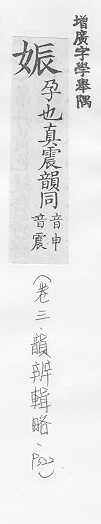 增廣字學舉隅
娠
孕也真震韻同音申
音震
(卷三、韻辨輯略、P322)